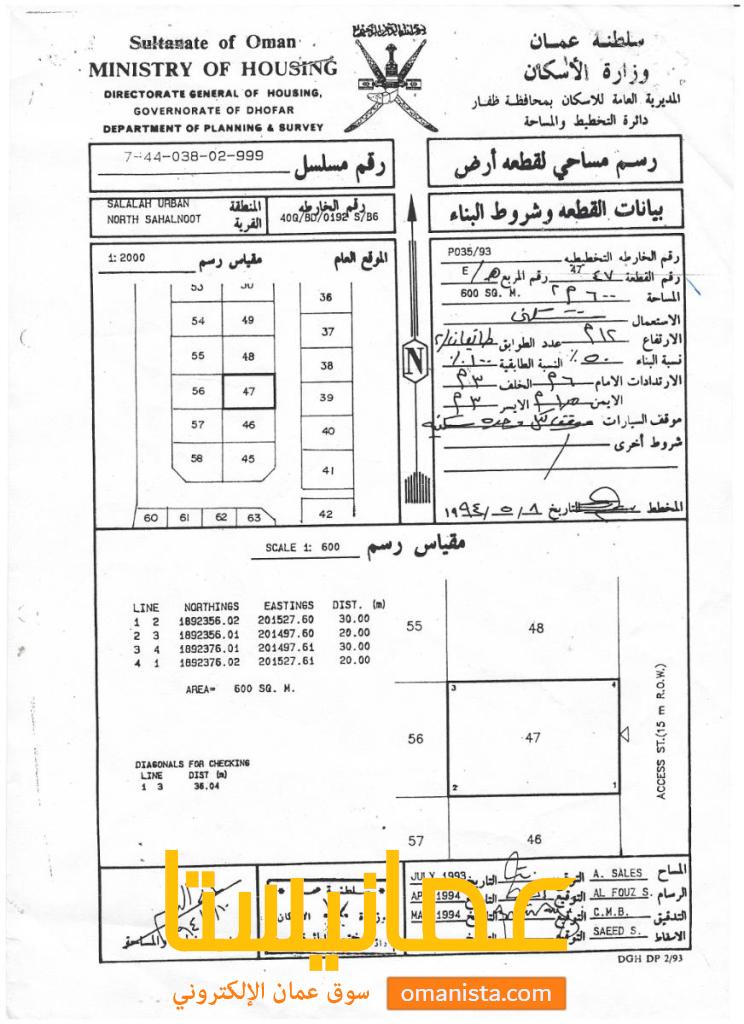 Sultanate of Oman
MINISTRY OF HOUSING
DIRECTORATE GENERAL OF HOUSING,
GOVERNORATE OF DHOFAR
DEPARTMENT OF PLANNING & SURVEY
سلطنة عمان
وزارة الأسكان
المديرية العامة للاسكان بمحافظة ظفار
دائرة التخطيط والمساحة
7-44-038-02-999 رقم مسلسل
رسم مساحي لقطعه أرض
SALALAH URBAN المنطقة
NORTH SAHALNOOT القرية
رقم الخارطه
40Q/BD/0192 S/B6
بيانات القطعه وشروط البناء
1:2000 مقياس رسم
الموقع العام
53
54 49
55 48
56 47
57 46
58 45
60 61 62 63
36
37
38
39
40
41
42
N
رقم الخارطه التخطيطيه P035/93
رقم القطعة ٤٧ 47 رقم المربع ه/E
المساحة ٦٠٠ م٢ 600 SQ. M.
الاستعمال سكنى
الارتفاع ١٢م عدد الطوابق
نسبة البناء ٥٠٪ النسبة الطابقية ١٠٠٪
الارتدادات الامام ٦م الخلف ٣م
الايمن الايسر ٣م
موقف السيارات موقف لكل وحدة سكنية
شروط أخرى
المخطط التاريخ ١٩٩٤/٥/٨
SCALE 1: 600 مقياس رسم
LINE NORTHINGS EASTINGS DIST. (m)
1 2 1892356.02 201527.60 30.00
2 3 1892356.01 201497.60 20.00
3 4 1892376.01 201497.61 30.00
4 1 1892376.02 201527.61 20.00
AREA= 600 SQ. M.
DIAGONALS FOR CHECKING
LINE DIST (m)
1 3 36.04
55 48
3 4
56 47
2 1
57 46
ACCESS ST.(15 m R.O.W.)
المساح A. SALES التوقيع التاريخ JULY 1993
الرسام AL FOUZ S. التوقيع التاريخ 1994
التدقيق C.M.B. التوقيع التاريخ 1994
الاسقاط SAEED S. التوقيع
سلطنة
وزارة الاسكان
والمساحة
DGH DP 2/93
عمانيستا
سوق عمان الإلكتروني
omanista.com